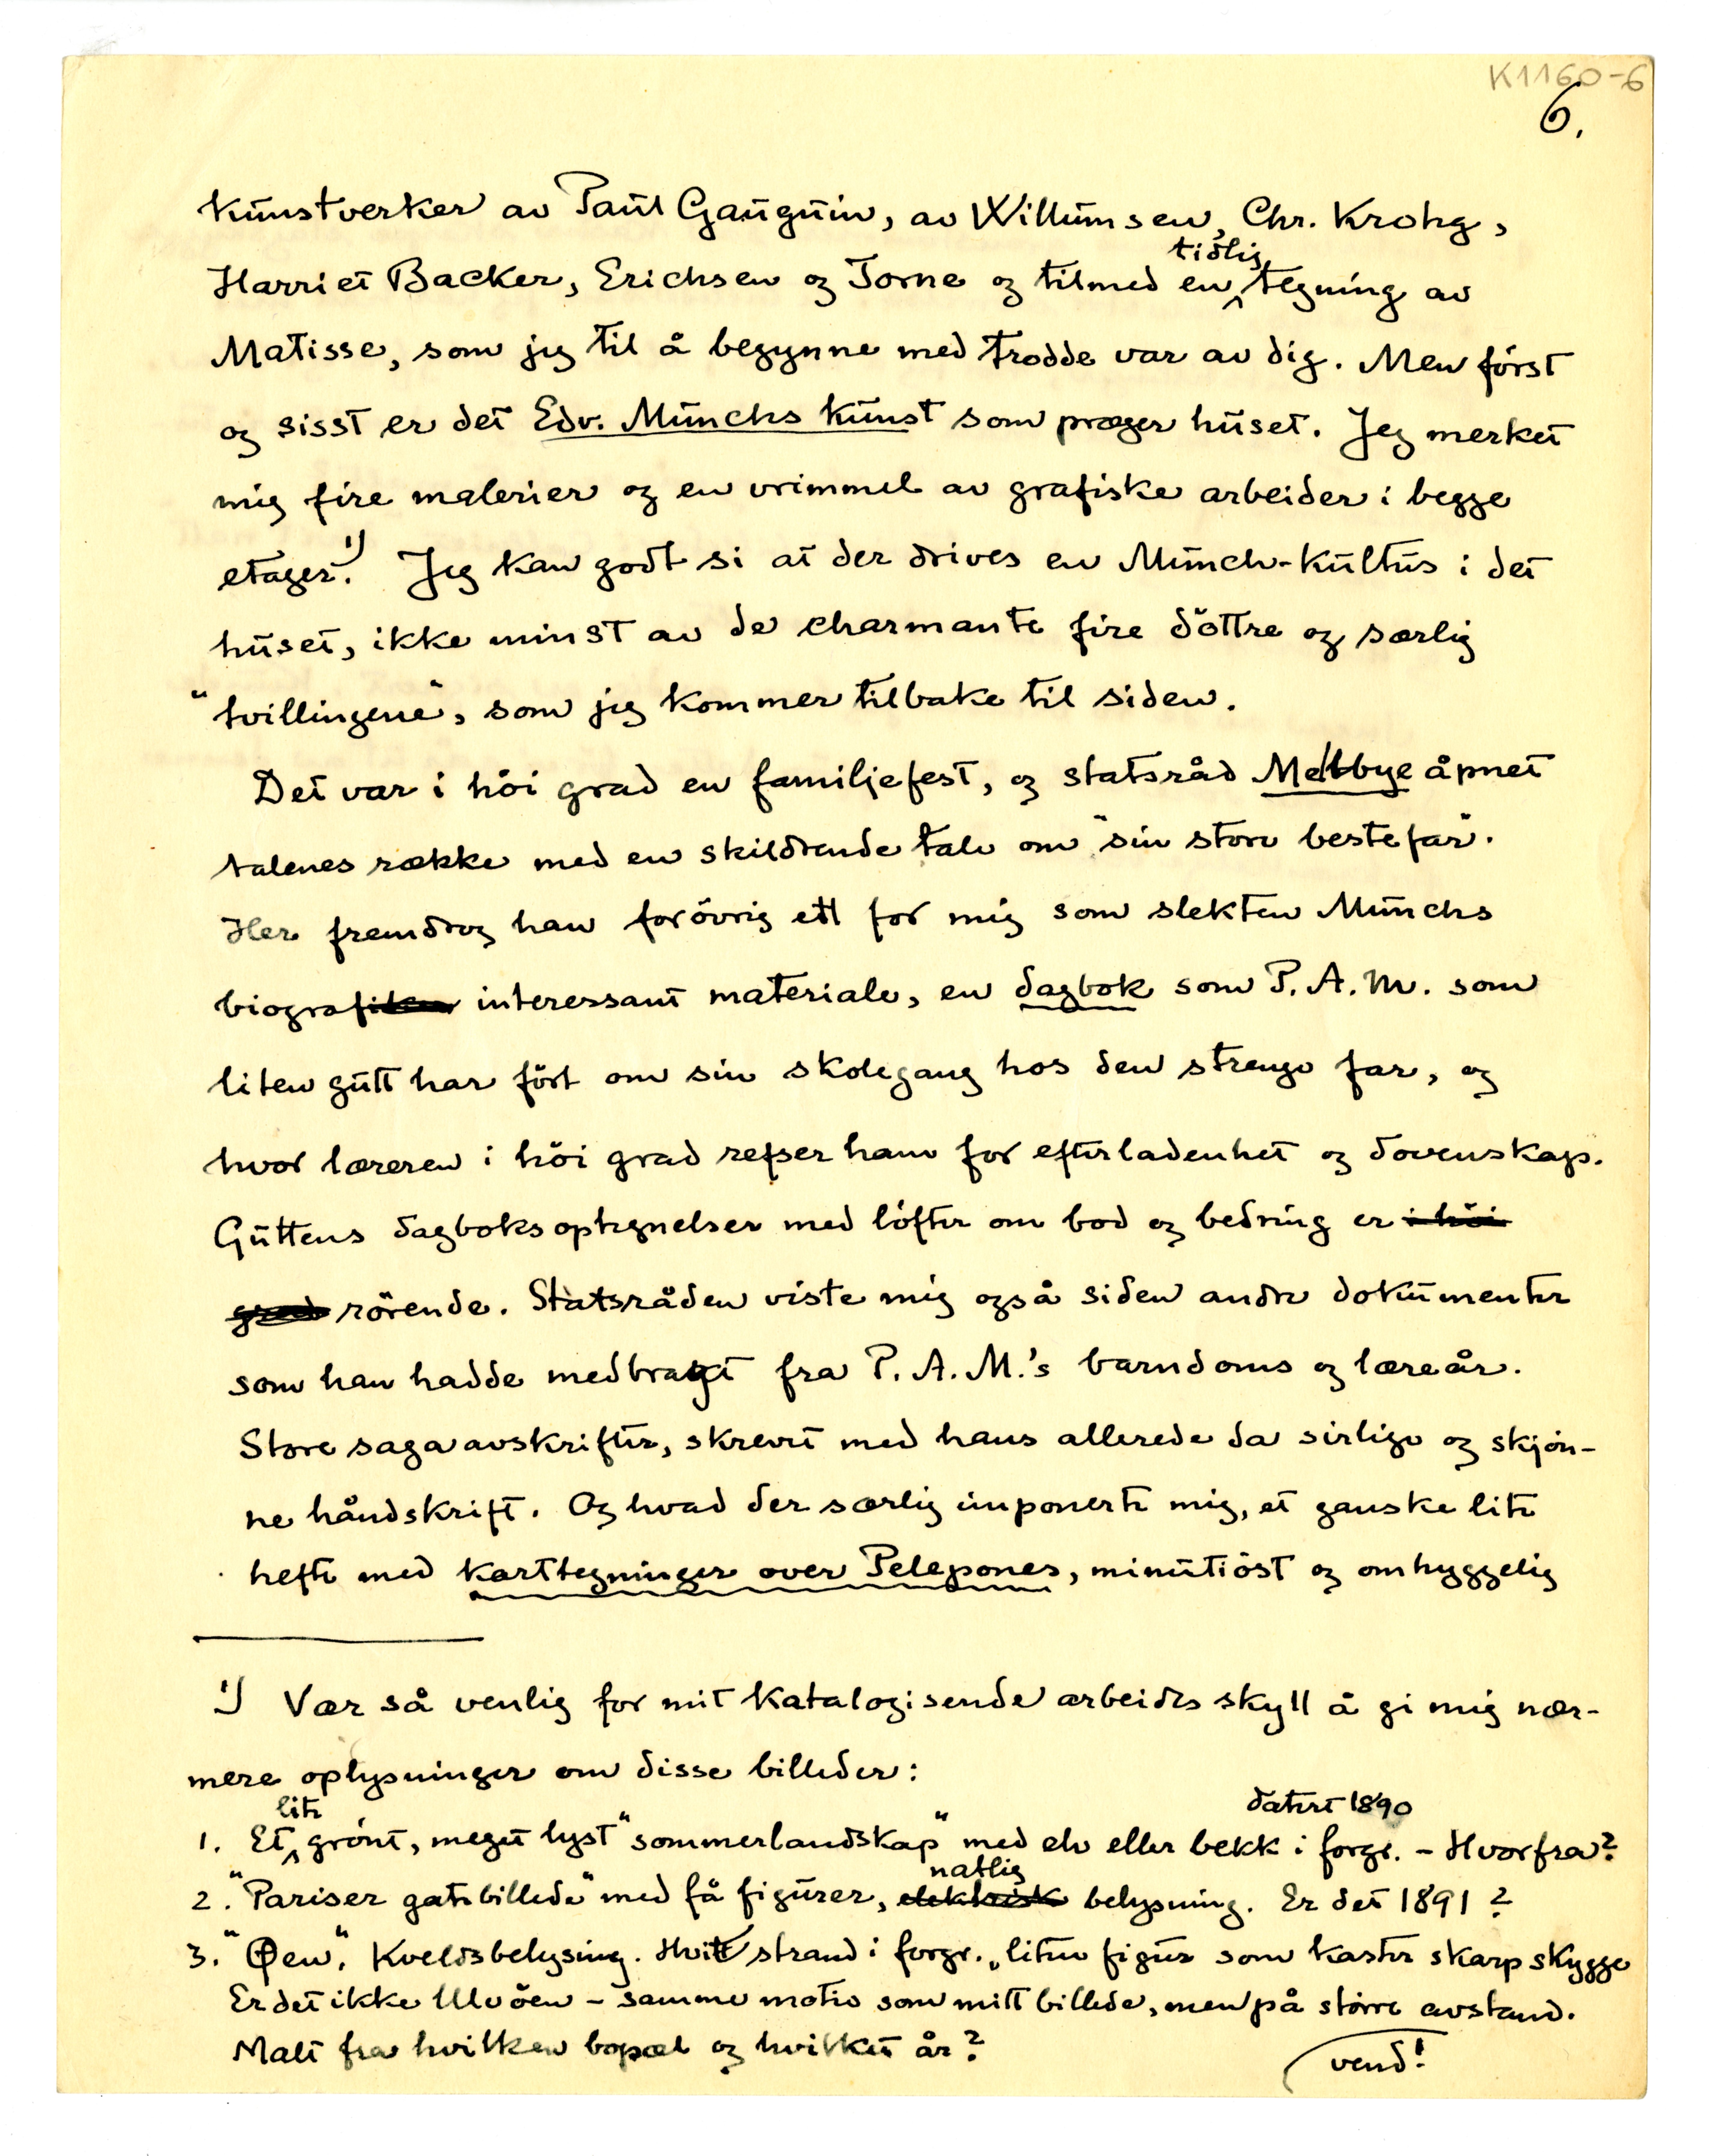 K1160-6
6.
kunstverker av Paul Gauguin, av Willumsen, Chr. Krohg,
Harriet Backer, Erichsen og Torne og tilmed en tidlig tegning av
Matisse, som jeg til å begynne med trodde var av dig. Men först
og sisst er det Edv. Munchs kunst som præger huset. Jeg merket
mig fire malerier og en vrimmel av grafiske arbeider i begge
etager.1) Jeg kan godt si at der drives en Munch-kultus i det
huset, ikke minst av de charmante fire döttre og særlig
"tvillingene", som jeg kommer tilbake til siden.
Det var i höi grad en familjefest, og statsråd Mellbye åpnet
talenes række med en skildrende tale om "sin store bestefar".
Her fremdrog han forövrig ett for mig som slekten Munchs
biograf interessant materiale, en dagbok som P. A. M. som
liten gutt har fört om sin skolegang hos den strenge far, og
hvor læreren i höi grad refser ham for efterladenhet og dovenskap.
Guttens dagboksoptegnelser med löfter om bod og bedring er i höi
grad rörende. Statsråden viste mig også siden andre dokumenter
som han hadde medbragt fra P. A. M.'s barndoms og læreår.
Store sagaavskrifter, skrevet med hans allerede da sirlige og skjön-
ne håndskrift. Og hvad der særlig imponerte mig, et ganske lite
hefte med karttegninger over Pelepones, minutiöst og omhyggelig
1) Vær så venlig for mit katalogisende arbeides skyll å gi mig nær-
mere oplysninger om disse billeder:
1. Et lite grönt, meget lyst "sommerlandskap" med elv eller bekk i forgr. datert 1890 - Hvorfra?
2. "Pariser gatebillede" med få figurer, elektrisk natlig belysning. Er det 1891?
3. "Øen". Kveldsbelysing. Hvit strand i forgr., liten figur som kaster skarp skygge
Er det ikke Ulvöen - samme motiv som mitt billede, men på större avstand.
Malt fra hvilken bopæl og hvilket år?
vend!